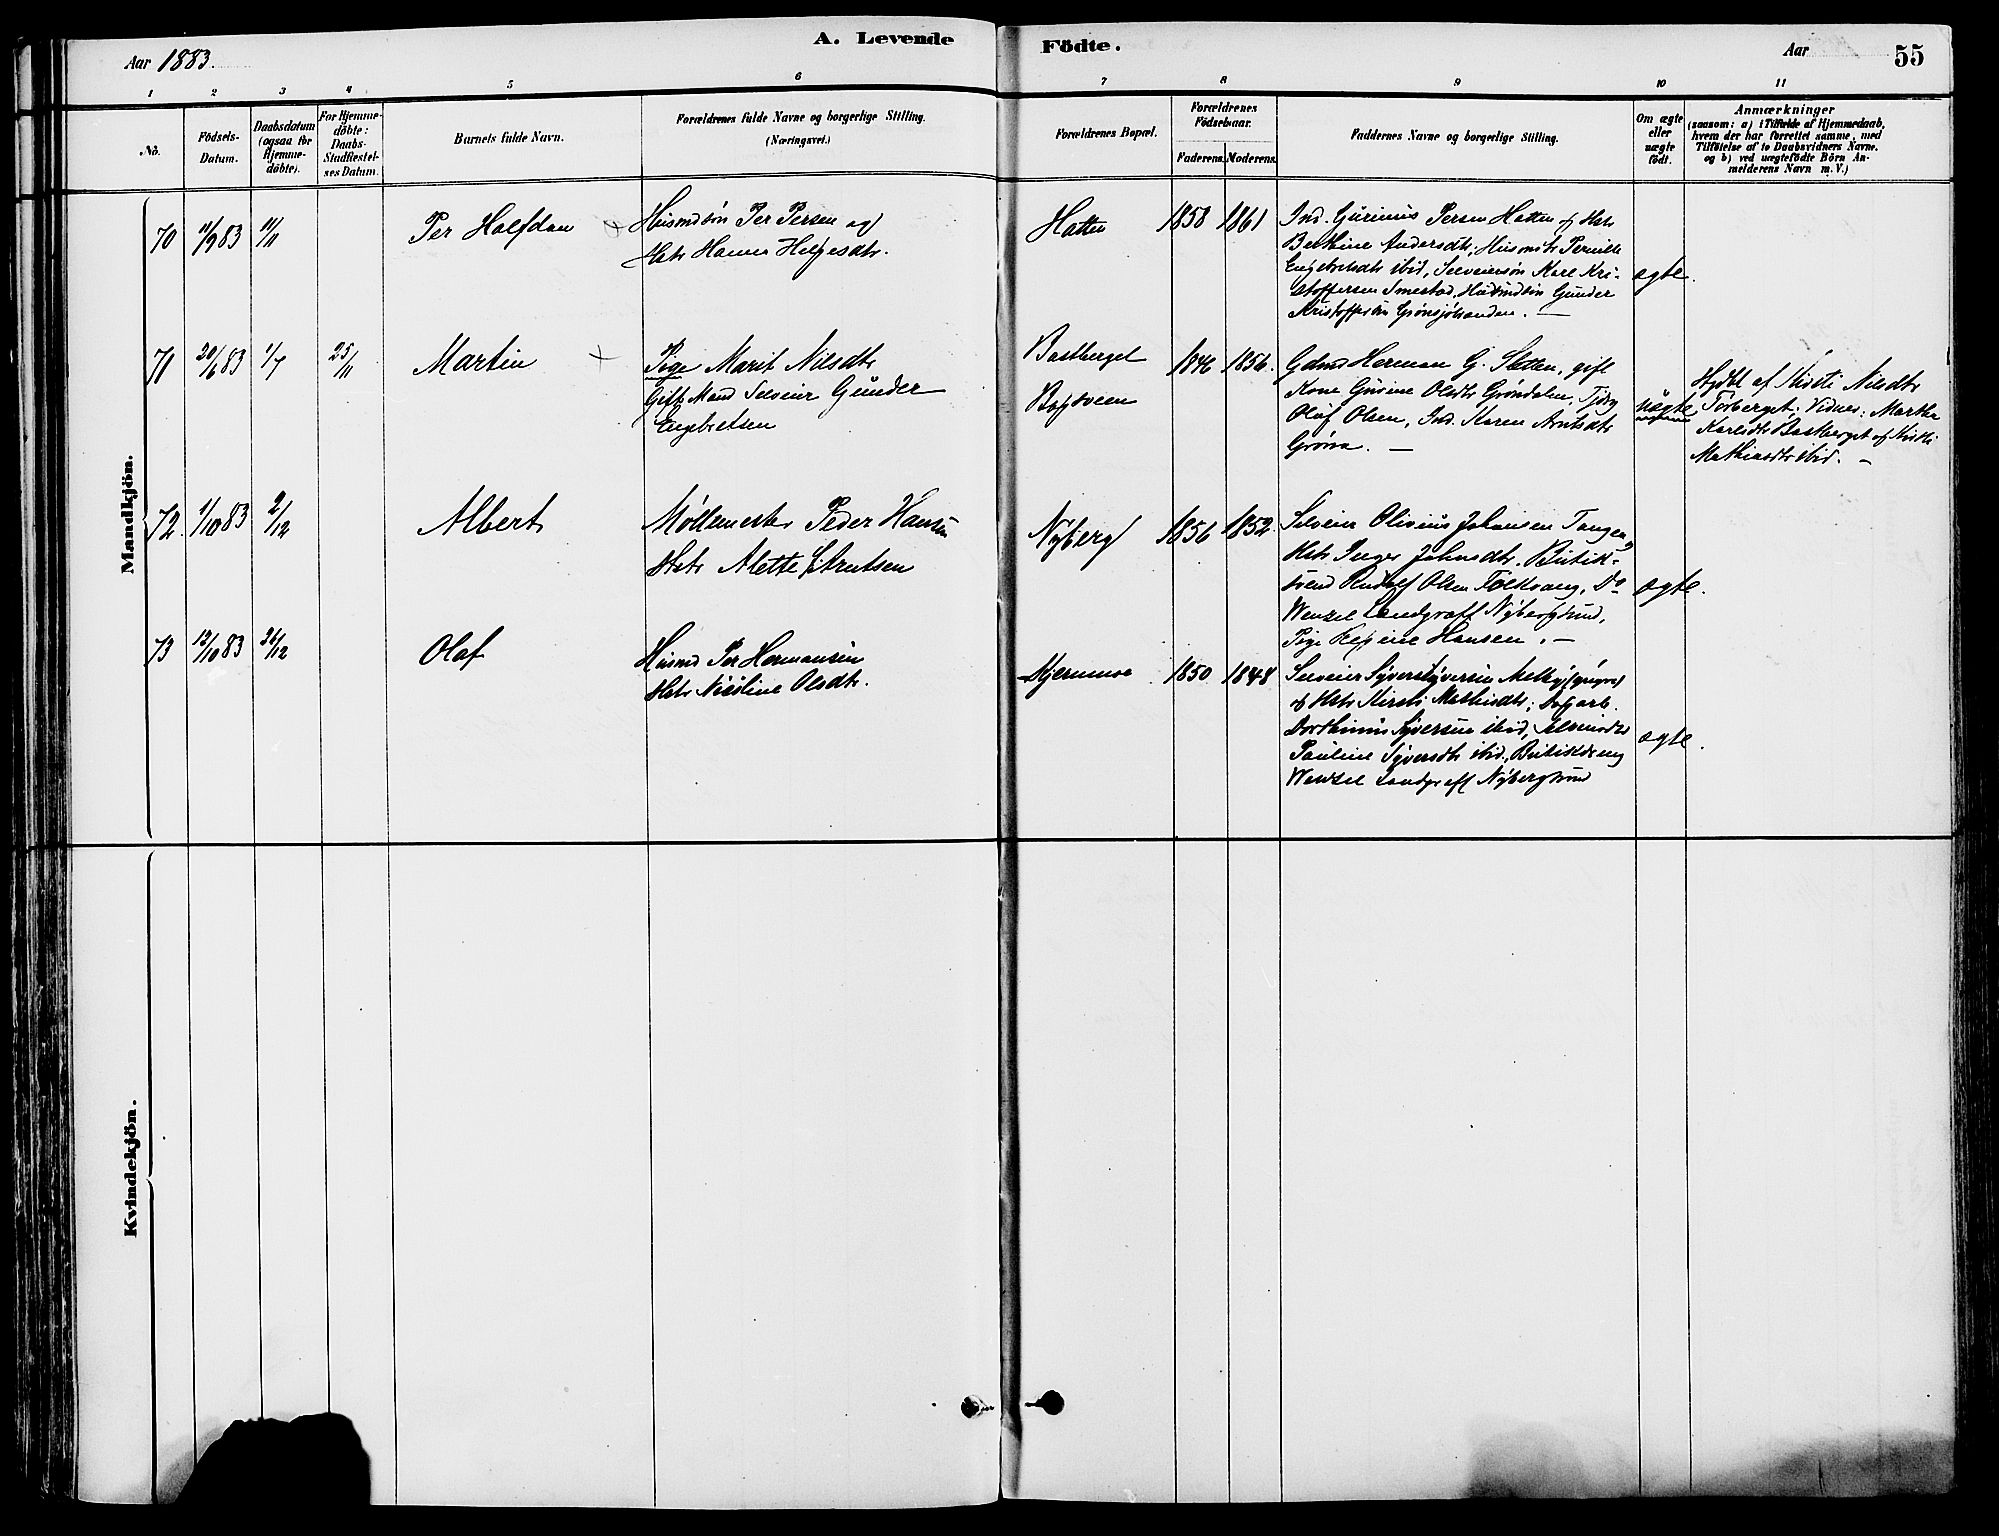 A. Levende Födte.
Aar 1883.
Aar
55
1 2 3 4 5 6 7 8 9 10 11
No.
Födsels-Datum.
Daabsdatum (ogsaa for Hjemmedöbte).
For Hjemmedöbte: Daabs-Stadfæstelses Datum.
Barnets fulde Navn.
Forældrenes fulde Navne og borgerlige Stilling. (Næringsvei.)
Forældrenes Bopæl.
Forældrenes Födselsaar.
Faderens. Moderens.
Faddernes Navne og borgerlige Stilling.
Om ægte eller uægte födt.
Anmærkninger
(saasom: a) i Tilfælde af Hjemmedaab,
hvem der har forrettet samme, med
Tilföielse af to Daabsvidners Navne,
og b) ved uægtefödte Börn An-
melderens Navn m. V.)
Mandkjön.
70 11/9 83 11/11 Per Halfdan
Husmdsøn Per Persen og
Hstr Hanna Helgesdtr.
Hatten 1858 1861
Ind. Gurinius Persen Hatten og Hstr
Berthine Andersdtr, Husmdtr Pernille
Engebretsdtr ibid, Selveiersøn Karl Kri-
stoffersen Smestad, Husmdsøn Gunder
Kristoffersen Grønsjøbanden. —
ægte.
71 20/6 83 1/7 25/11 Martin
Pige Marit Nilsdtr
Gift Mand Selveier Gunder
Engebretsen
Bastberget
1846 1856.
Gdmd Herman G. Sletten, gift
Kone Gurine Olsdtr Grøndalen, Tjdrg
Olaf Olsen, Ind. Karen Arntsdtr
Grøna. —
Uægte
Hjdbt af Kirsti Nilsdtr
Torberget; Vidner: Martha
Karlsdtr Bastberget og Kirsti
Mathiasdtr ibid. —
72. 1/10 83 2/12 Albert
Møllemester Peder Hansen
Hstr Alette Arntsen
Nyberg 1856 1852.
Selveier Olivius Johansen Tangen,
Hstr Inger Johnsdtr, Butik-
svend Rudolf Olsen Folkvang, Do
Wenzel Landgraff Nybergsund,
Pige Hansen. —
ægte.
73 12/10 83 26/12 Olaf
Husmd Per Hermansen
Hstr Nicoline Olsdtr.
Hjernmoe 1850 1848
Selveier Syver Syversen Melby
og Hstr Kirsti Mathisdtr; Dagarb.
Dorthinus Syversen ibid, Selveierdtr
Pauline Syversdtr ibid, Butikdreng
Wenzel Landgraff Nybergsund
ægte.
Kvindekjön.